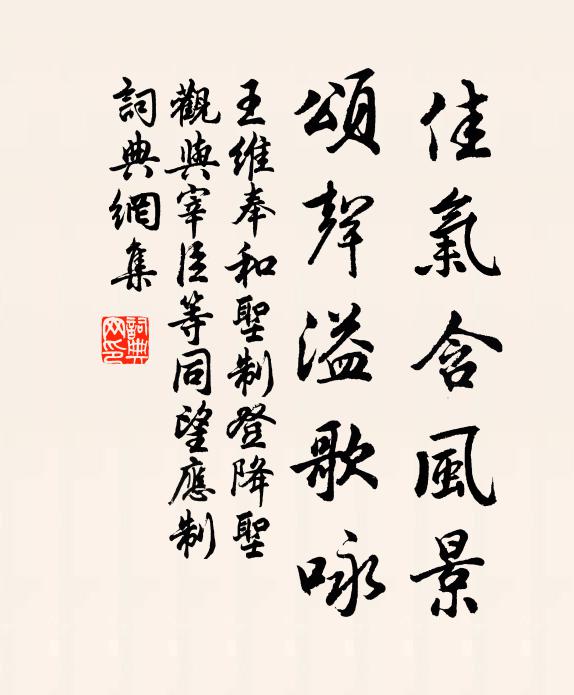 佳氣含風景
頌聲溢歌咏
王維奉和聖制登降聖
觀與宰臣等同望應制
詞典網集
詞典网印